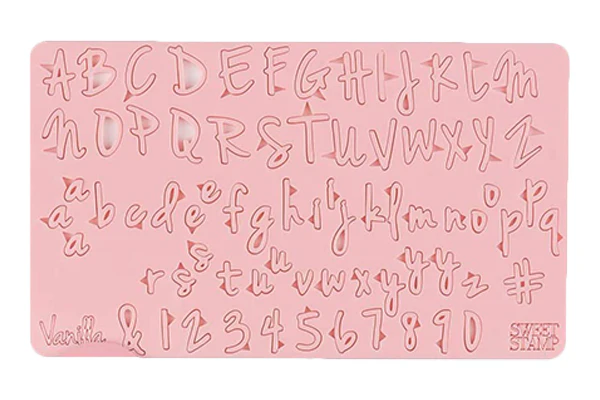 A B C D E F G H I J K L M
N O P Q R S T U V W X Y Z
a a a b c d e e f g h i i j k l m n o o p p q
r s s t u u v w x y y y z #
Vanilla & 1 2 3 4 5 6 7 8 9 0 SWEET STAMP